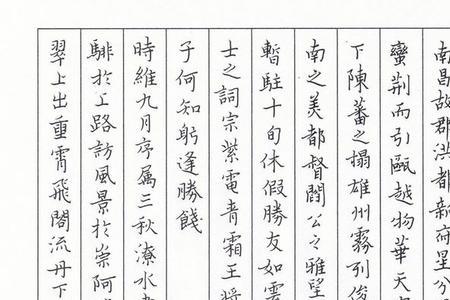 南昌故郡洪都新府星分
蠻荊而引甌越物華天
下陳蕃之榻雄州霧列俊
南之美都督閻公之雅望
暫駐十旬休假勝友如雲
士之詞宗紫電青霜王將
子何知躬逢勝餞
時維九月序属三秋潦水
騑於上路訪風景於崇阿
翠上出重霄飛閣流丹下